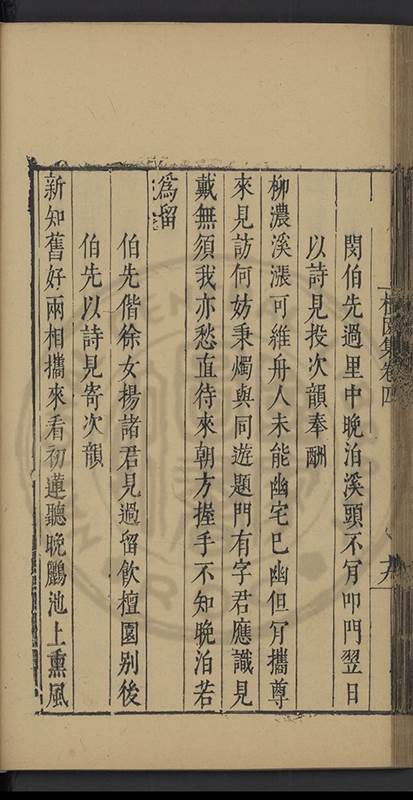 檀園集卷四
閔伯先過里中晚泊溪頭不肎叩門翌日
以詩見投次韻奉酬
柳濃溪漲可維舟人未能幽宅已幽但肎攜尊
來見訪何妨秉燭與同遊題門有字君應識見
戴無須我亦愁直待來朝方握手不知晚泊若
爲留
伯先偕徐女揚諸君見過留飲檀園別後
伯先以詩見寄次韻
新知舊好兩相攜來看初蓮聽晚鸝池上熏風